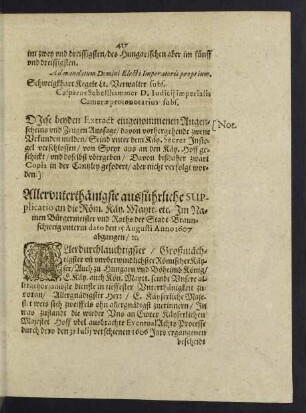 417
im zwey vnd dreissigsten/ des Hungarischen aber im fünff
vnd dreissigsten.
Ad mandatum Domini Electi Imperatoris proprium.
Schweigkhart Kegele Lt. Verwalter subs.
Casparus Schellhammer D. Iudicij imperialis
Cameræ protonotarius subs.
Diese beyden Extract eingenommenen Augen-
scheins vnd Zeugen Aussage/ davon vorhergehende zweene
Vrkunden melden/ Seind vnter dem Käy. Secret Insie-
gel verschlossen/ von Speyr aus an den Käy. Hoff ge-
schickt/ vnd doselbst vbergeben/ Davon bishäher zwart
Copia in der Cantzley gefordert/ aber nicht verfolgt wor-
den.)
[Not.
Allervnterthänigste ausführliche sup-
plicatio an die Röm. Käy. Mayst. etc. Im Na-
men Bürgermeister vnd Raths der Stadt Braun-
schweig vnterm dato den 15 Augusti Anno 1607
abgangen/ rc.
ALlerdurchlauchtigster / Großmäch-
tigster vñ vnvberwindlichster Römischer Käy-
ser/ Auch zu Hungarn vnd Böheimb König/
E. Röm. Käy. auch Kön. Mayst. seinds Vnsere al-
lervnterthänigste dienste in tieffester Vnterthänigkeit zu-
voran/ Allergnädigster Herr/ E. Käyserliche Maje-
stat werden sich zweiffels ohn allergnädigst zuerinnern/ In
was zustandt die wieder Vns an Ewrer Käyserlichen
Majestet Hoff vbel ausbrachte Eventual Achts Processe
durch dero den 31 Iulij verschienen 1606 Jars ergangenen
bescheids